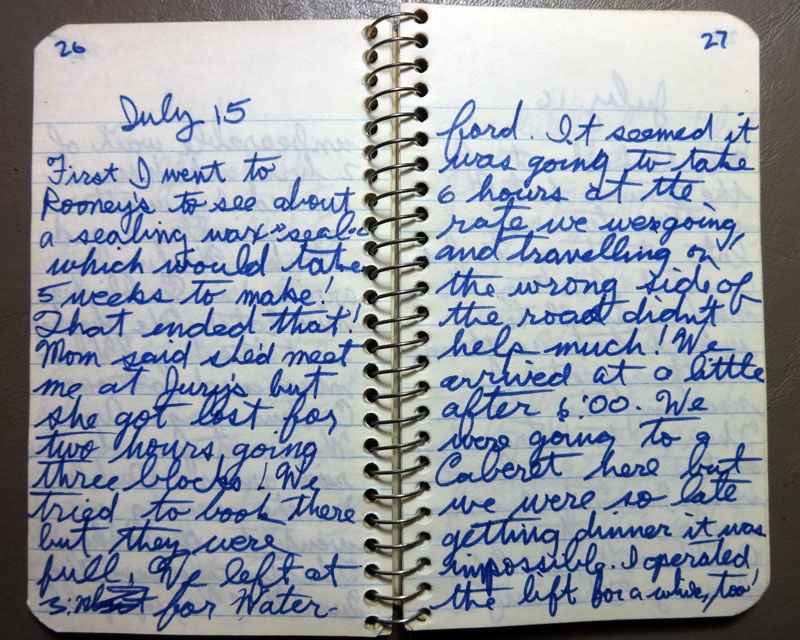 26
July 15
First I went to
Rooney's to see about
a sealing wax "seal"
which would take
5 weeks to make!
That ended that!
Mom said she'd meet
me at Jury's but
she got lost for
two hours going
three blocks! We
tried to book there
but they were
full. We left at
for Water-
27
ford. It seemed it
was going to take
6 hours at the
rate we were going,
and travelling on
the wrong side of
the road didn't
help much! We
arrived at a little
after 6:00. We
were going to a
Caberet here but
we were so late
getting dinner it was
impossible. I operated
the lift for a while, too!